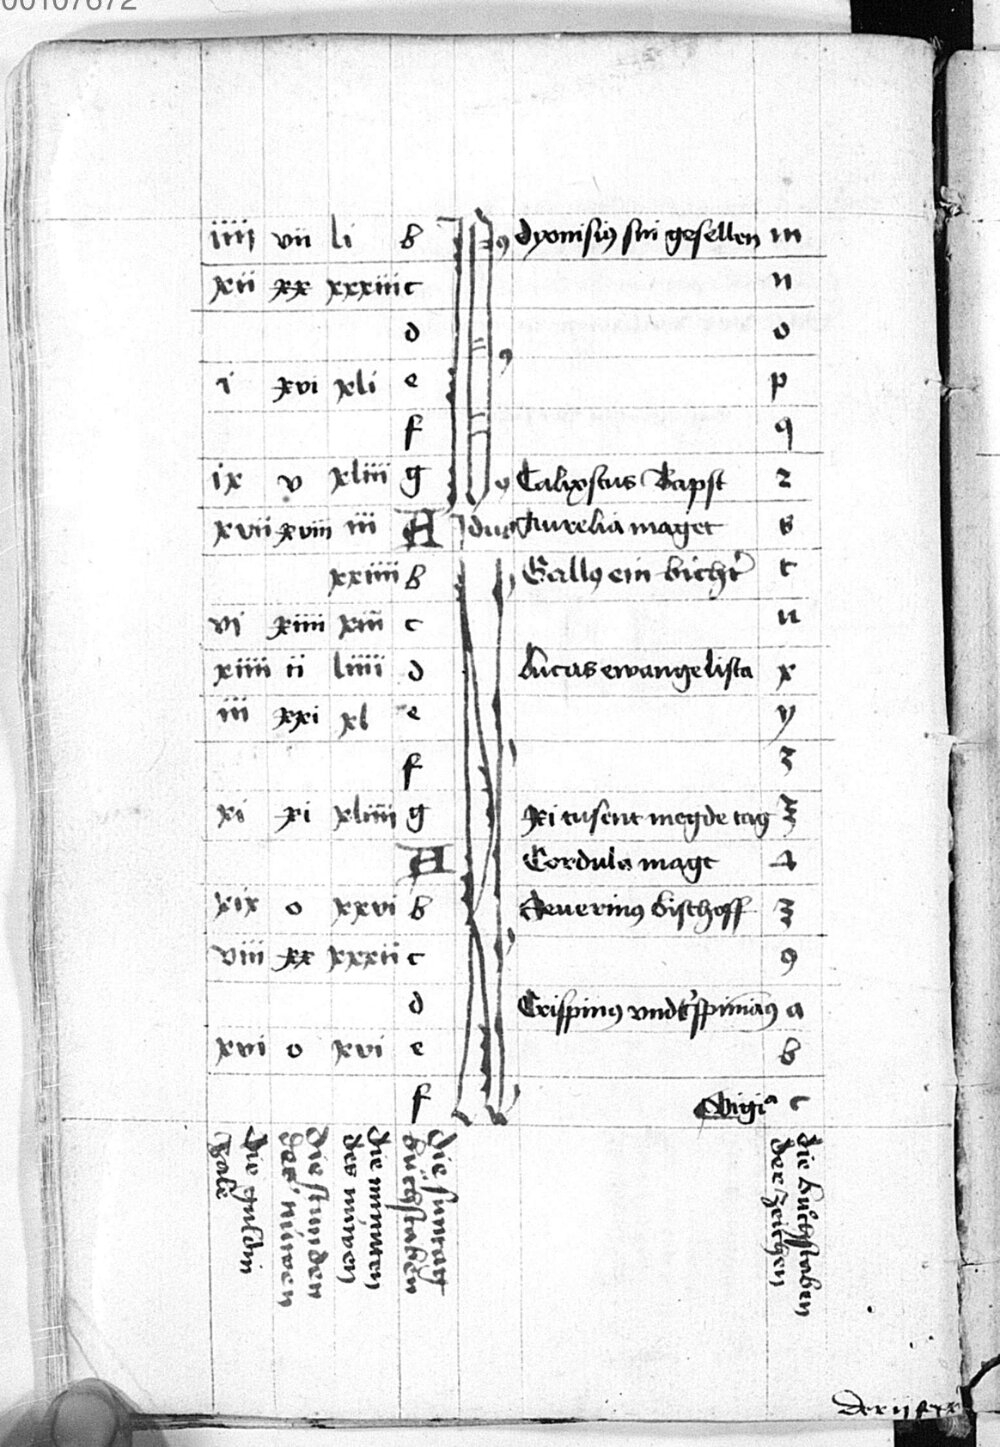 00107672
iiii vii li b dyonisius sin gesellen m
xii xx xxxiii c n
d o
i xvi xli e p
f q
ix v xliii g Calixstus Bapst z
xvii xviii iii A Aurelia maget s
xxiiii b Gallus ein bichter t
vi xiiii xiii c u
xiiii ii liiii d Lucas ewangelista x
iii xxi xl e y
f z
xi xi xliiii g xi tusent megde tag
A Cordula magt
xix o xxvi b Severinus bischoff
viii xx xxxii c 9
d Crispinus und a
xvi o xvi e b
f Vigia c
Die guldin zale
Die stunden der nüwen
die minuten des nüwen
die suntag buchstaben
die buchstaben der zeichen